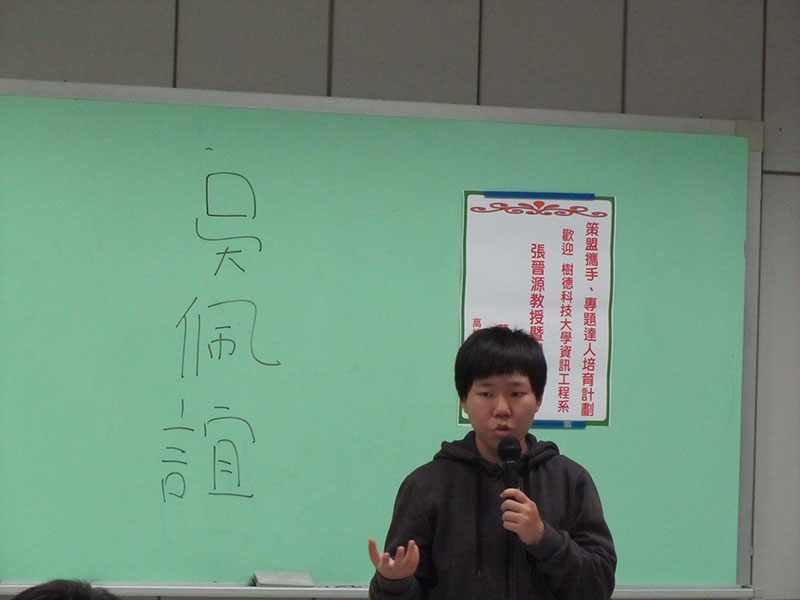 吳佩誼
策盟攜手、專題達人培育計劃
歡迎 樹德科技大學資訊工程系
張晉源教授暨
高